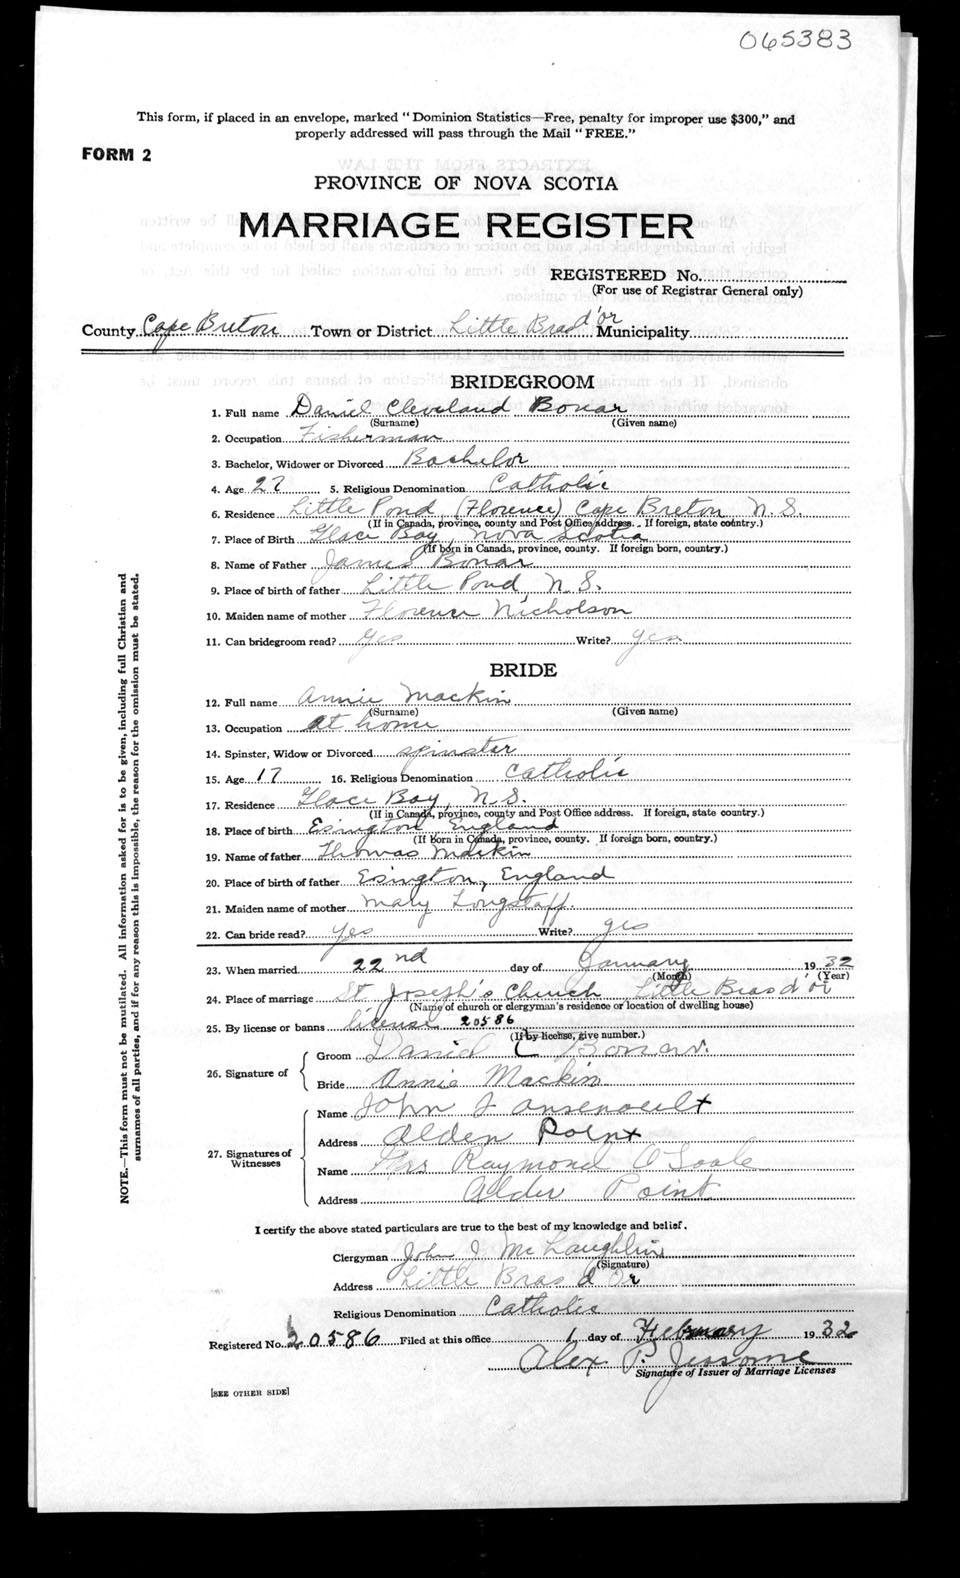 065383
This form, if placed in an envelope, marked "Dominion Statistics—Free, penalty for improper use $300," and
properly addressed will pass through the Mail "FREE."
FORM 2
PROVINCE OF NOVA SCOTIA
MARRIAGE REGISTER
REGISTERED No.
(For use of Registrar General only)
County Cape Breton Town or District Little Bras d'or Municipality
BRIDEGROOM
1. Full name Daniel Cleveland Bonar
(Surname) (Given name)
2. Occupation Fisherman
3. Bachelor, Widower or Divorced Bachelor
4. Age 27 5. Religious Denomination Catholic
6. Residence Little Pond (Florence) Cape Breton N.S.
(If in Canada, province, county and Post Office address. If foreign, state country.)
7. Place of Birth Glace Bay, Nova Scotia
(If born in Canada, province, county. If foreign born, country.)
8. Name of Father James Bonar
9. Place of birth of father Little Pond, N.S.
10. Maiden name of mother Florence Nicholson
11. Can bridegroom read? Yes Write? yes
BRIDE
12. Full name Annie Mackin
(Surname) (Given name)
13. Occupation At home
14. Spinster, Widow or Divorced spinster
15. Age 17 16. Religious Denomination Catholic
17. Residence Glace Bay, N.S.
(If in Canada, province, county and Post Office address. If foreign, state country.)
18. Place of birth Esington, England
(If Born in Canada, province, county. If foreign born, country.)
19. Name of father Thomas Mackin
20. Place of birth of father Esington, England
21. Maiden name of mother Mary Longstaff.
22. Can bride read? Yes Write? yes
23. When married 22nd day of January 1932
(Month) (Year)
24. Place of marriage St Joseph's Church Little Bras d'or
(Name of church or clergyman's residence or location of dwelling house)
25. By license or banns license 20586
(If by license, give number.)
26. Signature of
Groom Daniel C Bonar.
Bride Annie Mackin
27. Signatures of Witnesses
Name John J Arsenault
Address Alder Point
Name Mrs Raymond O'Toole
Address Alder Point
I certify the above stated particulars are true to the best of my knowledge and belief.
Clergyman John J McLaughlin
(Signature)
Address Little Bras d'Or
Religious Denomination Catholic
Registered No. 20586 Filed at this office 1 day of February 1932
Alex P. Jessome
Signature of Issuer of Marriage Licenses
[SEE OTHER SIDE]
NOTE.—This form must not be mutilated. All information asked for is to be given, including full Christian and
surnames of all parties, and if for any reason this is impossible, the reason for the omission must be stated.